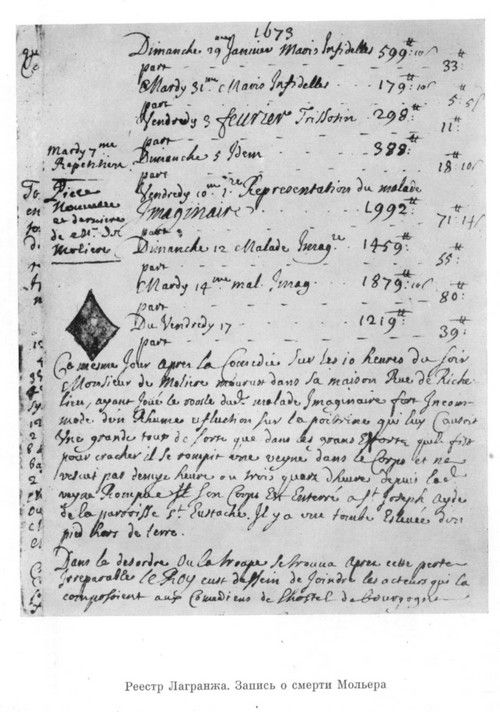 1673
Dimanche 29me Janvier Maris Infidelles 599tt 10s
part 33tt
Mardy 31me Maris Infidelles 179tt 10s
part 5tt 5s
Vendredy 3 feurier Trissotin 298tt
part 11tt
Mardy 7me
Repetition
Dimanche 5 Idem 388tt
part 18 10s
Piece
Nouuelle
et derniere
de Mr de
Moliere
Vendredy 10me 1re Representation du malade
Imaginaire 1992tt
part 71tt
Dimanche 12 Malade Imagre 1459tt
part 55tt
Mardy 14me mal. Imag. 1879tt 10s
part 80tt
Du Vendredy 17 1219tt
part 39tt
Ce mesme Jour apres la Comedie Sur les 10 heures du Soir
Monsieur de Moliere mourust dans sa maison Rue de Riche
lieu, ayant Joué le roosle dud. malade Imaginaire fort Incom
modé d'un Rhume et fluction sur la poictrine qui luy Causoit
Vne grande toux de Sorte que dans les grans Efforts qu'il fist
pour cracher il se rompit vne veyne dans le Corps et ne
vescut pas demye heure ou trois quarts dheure depuis lad.
veyne Rompue Et Son Corps Est Enterré a St Joseph Ayde
de la parroisse St Eustache. Il y a vne tombe Esleuée d'vn
pied hors de terre.
Dans le desordre Ou la troupe se trouua apres cette perte
Irreparable le Roy eust dessein de Joindre les acteurs qui la
composoient aux Comediens de lhostel de bourgogne
Реестр Лагранжа. Запись о смерти Мольера